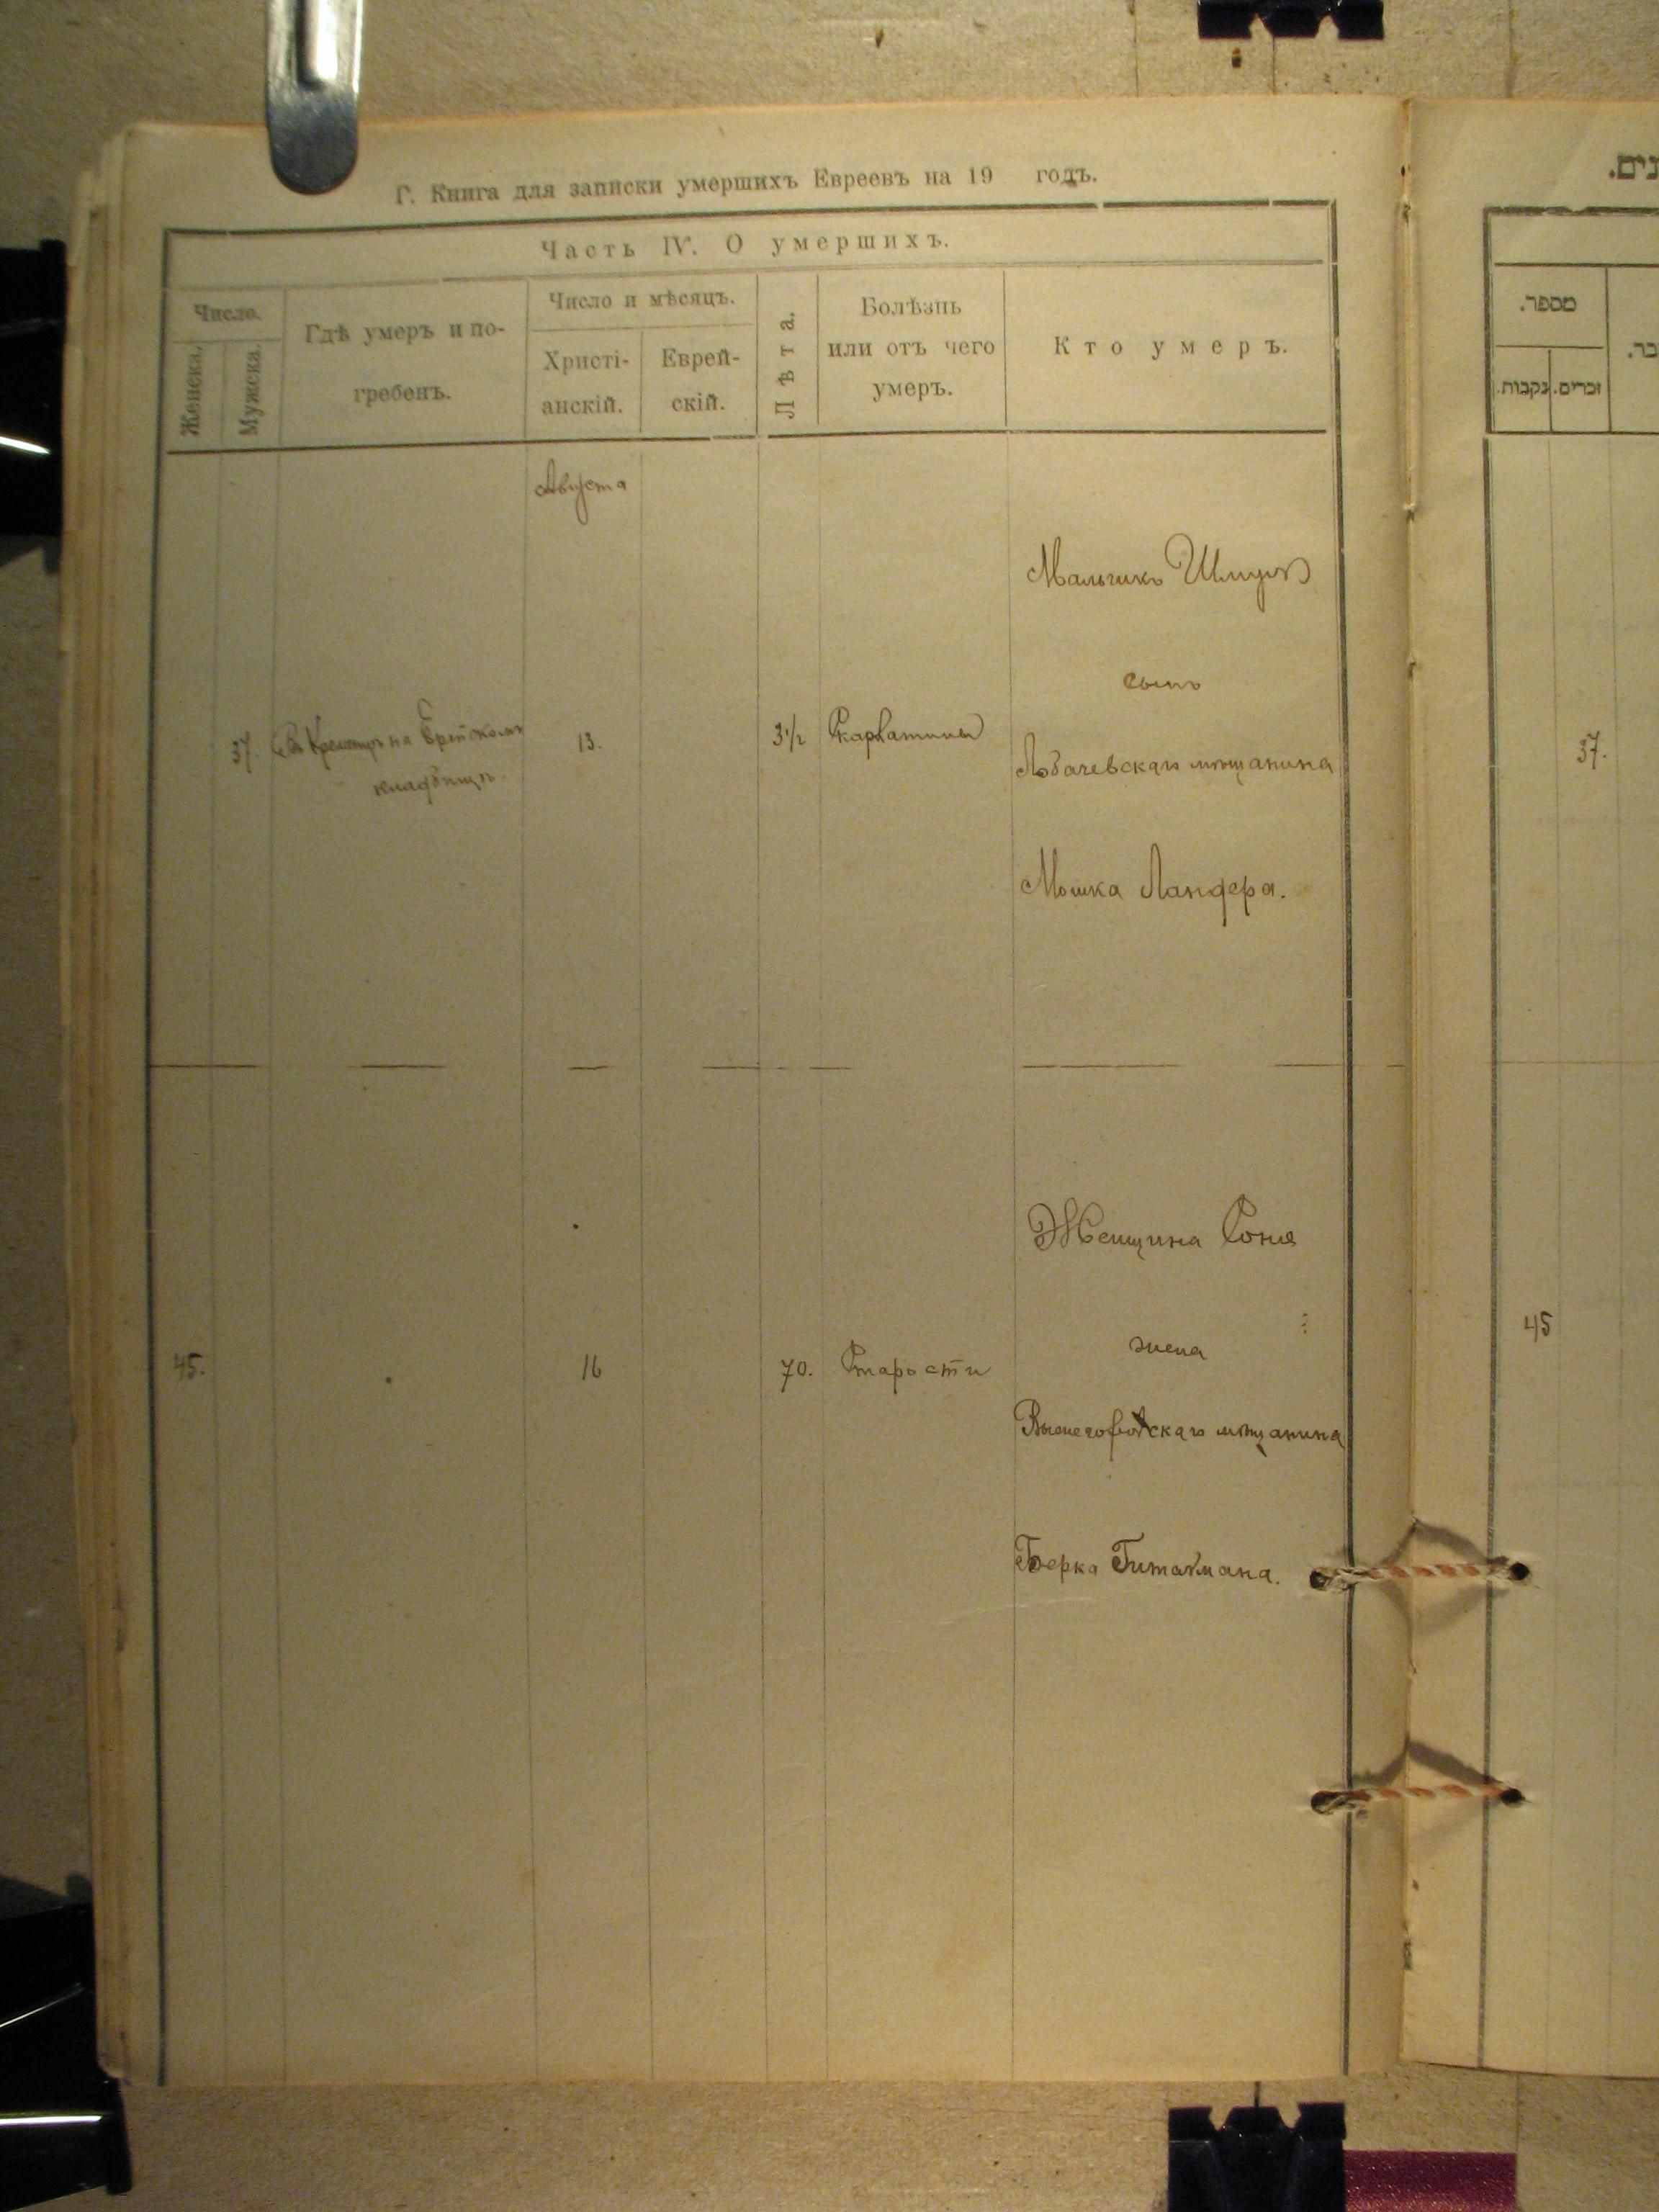 Г. Книга для записки умершихъ Евреевъ на 19 годъ.
Часть IV. О умершихъ.
Число.
Женска.
Мужска.
Гдѣ умеръ и по-
гребенъ.
Число и мѣсяцъ.
Христі-
анскій.
Еврей-
скій.
Лѣта.
Болѣзнь
или отъ чего
умеръ.
Кто умеръ.
Августа
Мальчикъ Шмуль
сынъ
37. Въ Кременцѣ на 13. 3½ Скарлатины Лобачевскаго мѣщанина
кладбищѣ
Мошка Ландера.
Женщина Соня
жена
45. 16 70. Старости
Вышегородскаго мѣщанина
Берка
מספר.
נקבות.
זכרים.
37.
45